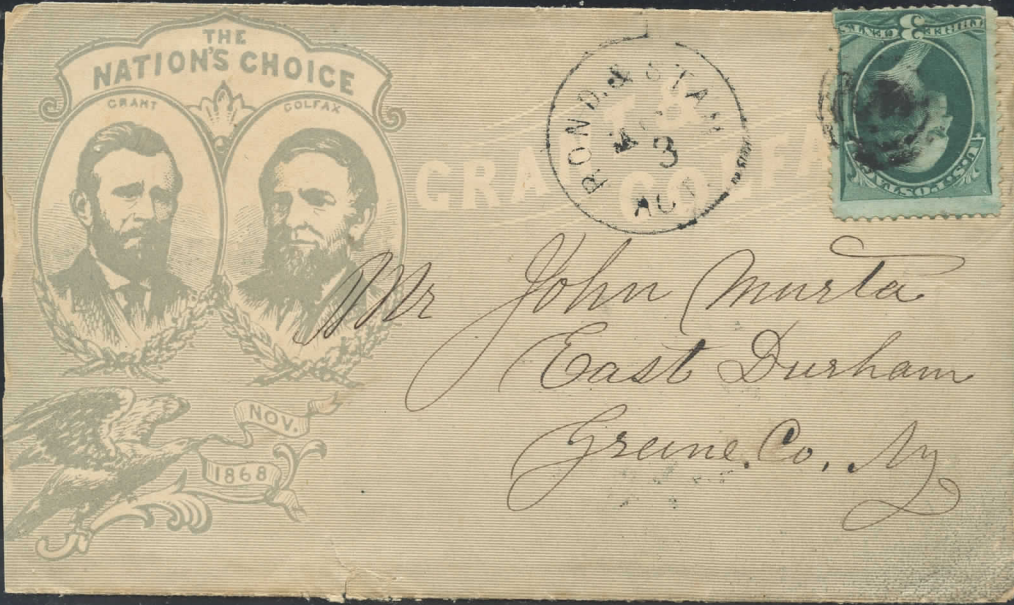 THE
NATION'S CHOICE
GRANT
COLFAX
NOV.
1868
GRA
COLFA
ROND. & STAM
3
AGT
U.S. POSTAGE
3
Mr John Murta
East Durham
Greene. Co. Ny